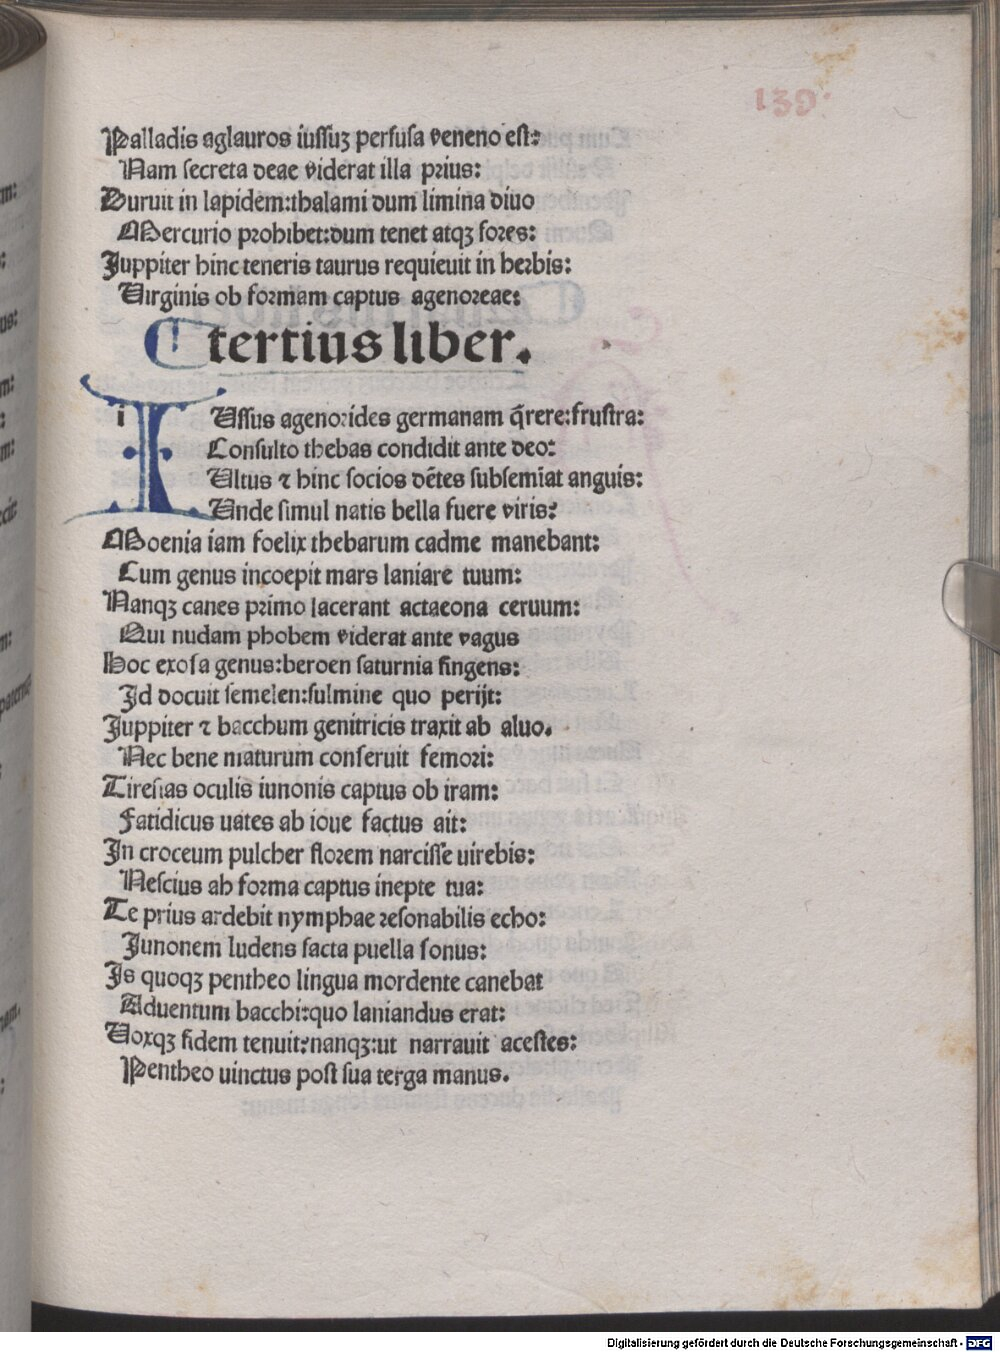 139.
Palladis aglauros iussuꝫ perfusa veneno est:
Nam secreta deae viderat illa prius:
Duruit in lapidem:thalami dum limina diuo
Mercurio prohibet:dum tenet atqꝫ fores:
Juppiter hinc teneris taurus requieuit in herbis:
Uirginis ob formam captus agenoreae:
tertius liber.
iUssus agenorides germanam q̄rere:frustra:
Consulto thebas condidit ante deo:
Ultus ⁊ hinc socios dētes subsemīat anguis:
Unde simul natis bella fuere viris:
Moenia iam foelix thebarum cadme manebant:
Cum genus incoepit mars laniare tuum:
Nanqꝫ canes primo lacerant actaeona ceruum:
Qui nudam phobem viderat ante vagus
Hoc exosa genus:beroen saturnia fingens:
Id docuit semelen:fulmine quo perijt:
Juppiter ⁊ bacchum genitricis traxit ab aluo.
Nec bene maturum conseruit femori:
Tiresias oculis iunonis captus ob iram:
Fatidicus uates ab ioue factus ait:
In croceum pulcher florem narcisse uirebis:
Nescius ah forma captus inepte tua:
Te prius ardebit nymphae resonabilis echo:
Junonem ludens facta puella sonus:
Is quoqꝫ pentheo lingua mordente canebat
Aduentum bacchi:quo laniandus erat:
Uoxqꝫ fidem tenuit:nanqꝫ:ut narrauit acestes:
Pentheo uinctus post sua terga manus.
Digitalisierung gefördert durch die Deutsche Forschungsgemeinschaft - DFG